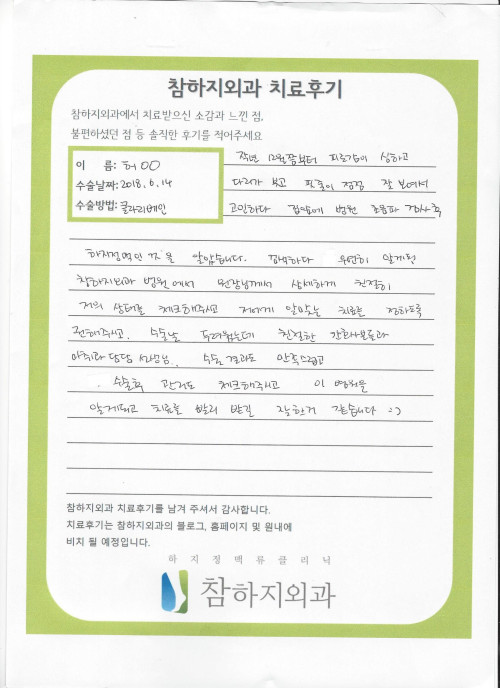 참하지외과 치료후기
참하지외과에서 치료받으신 소감과 느낀 점,
불편하셨던 점 등 솔직한 후기를 적어주세요
이 름: 허OO
수술날짜: 2018. 6. 14
수술방법: 클라리베인
작년 12월쯤부터 피로감이 심하고
다리가 붓고 핏줄이 점점 잘 보여서
고민하다 집앞에 병원 초음파 검사 후
하지정맥인 것을 알았습니다. 검색하다 우연히 알게된
참하지외과 병원에서 원장님께서 상세하게 친절히
저의 상태를 체크해주시고 저에게 알맞는 치료를 정하도록
권해주시고, 수술날 두려웠는데 친절한 간호사분들과
마취과 담당 선생님, 수술 결과도 만족스럽고
수술후 관리도 체크해주시고 이 병원을
알게되고 치료를 빨리 받길 잘한거 같습니다 :)
참하지외과 치료후기를 남겨 주셔서 감사합니다.
치료후기는 참하지외과의 블로그, 홈페이지 및 원내에
비치 될 예정입니다.
하지정맥류클리닉
참하지외과